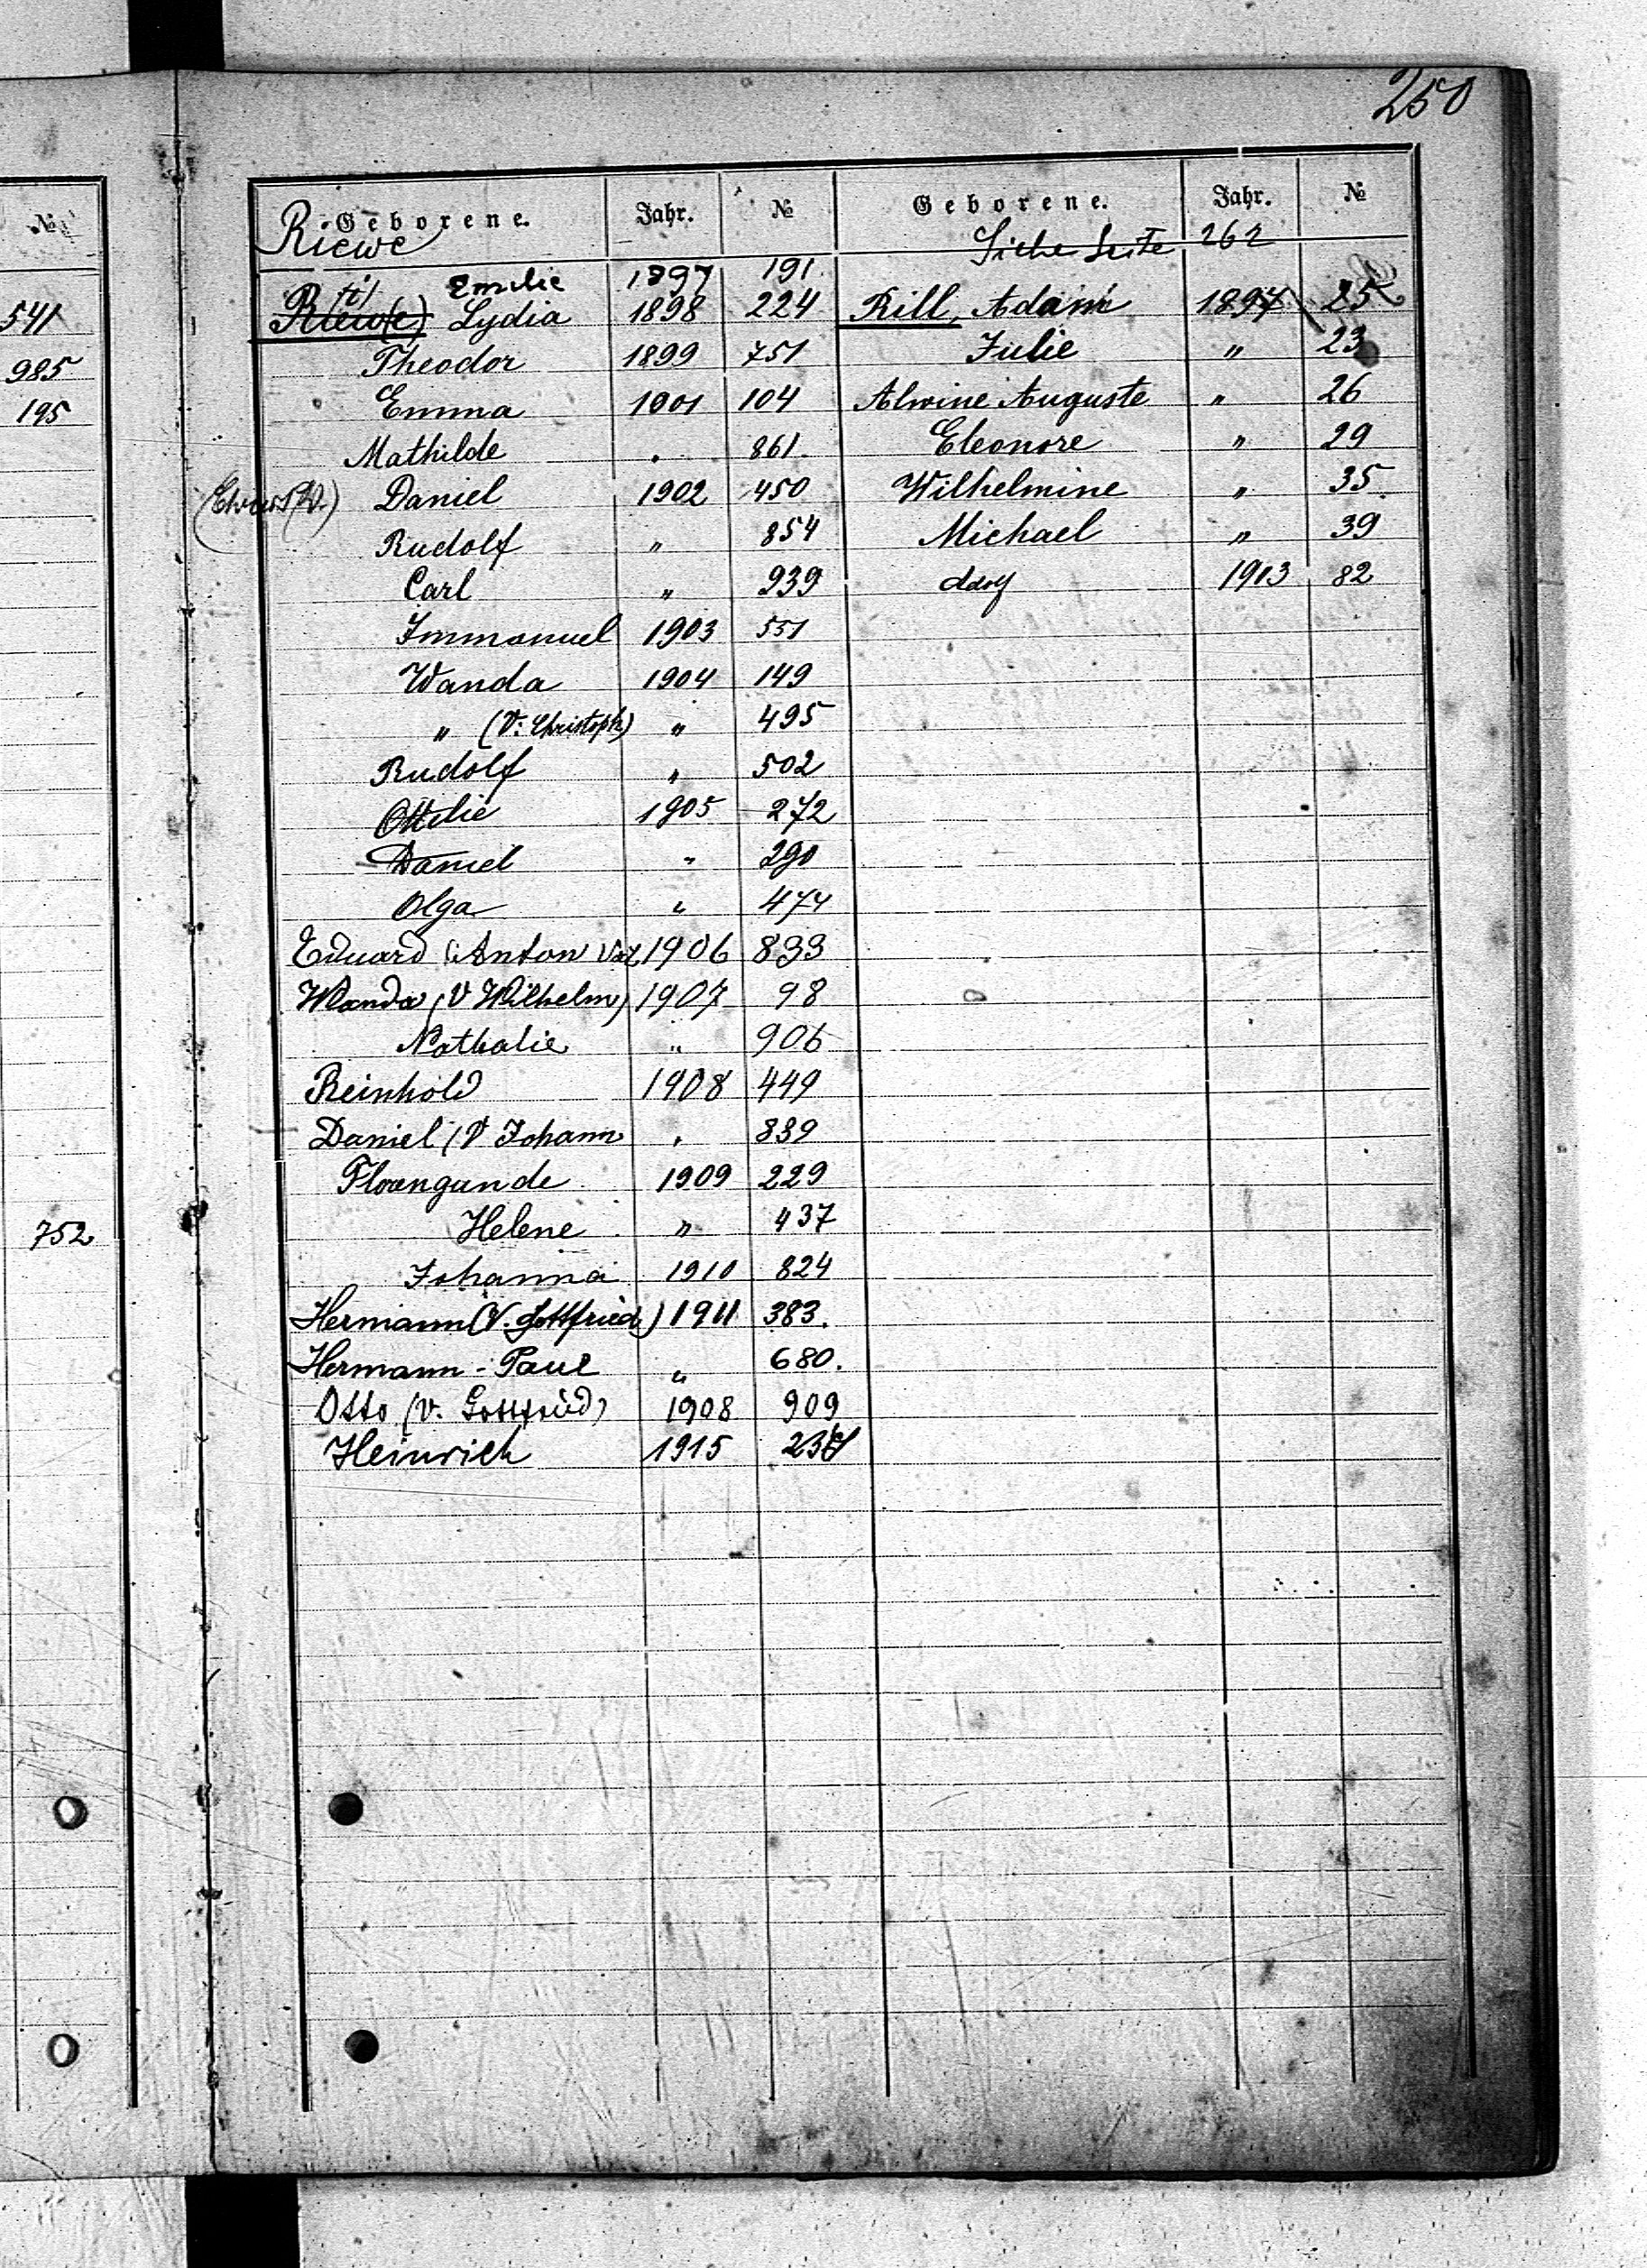 250
№
541
985
195
752
Geborene. Jahr. №
Riewe
Emilie 1897 191
Riew(e) Lydia 1898 224
Theodor 1899 751
Emma 1901 104
Mathilde . 861.
Daniel 1902 450
Rudolf " 854
Carl " 939
Immanuel 1903 551
Wanda 1904 149
" (V: Christoph) " 495
Rudolf " 502
Ottilie 1905 272
Daniel " 290
Olga " 474
Eduard (Anton Vat 1906 833
Wanda (V Wilhelm) 1907 98
Nathalie " 906
Reinhold 1908 449
Daniel (V Johann " 839
1909 229
Helene " 437
Johanna 1910 824
Hermann (V. Gottfried) 1911 383.
Hermann - Paul " 680.
Otto (V. Gottfried) 1908 909
Heinrich 1915
Geborene. Jahr. №
Siehe Seite 262
Rill, Adam 1897 25
Julie " 23
Alwine Auguste " 26
Eleonore " 29
Wilhelmine " 35.
Michael " 39
1913 82